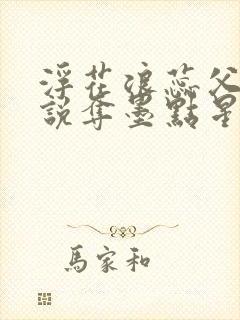 浮花浪蕊父
說奪墨點星
馬家和